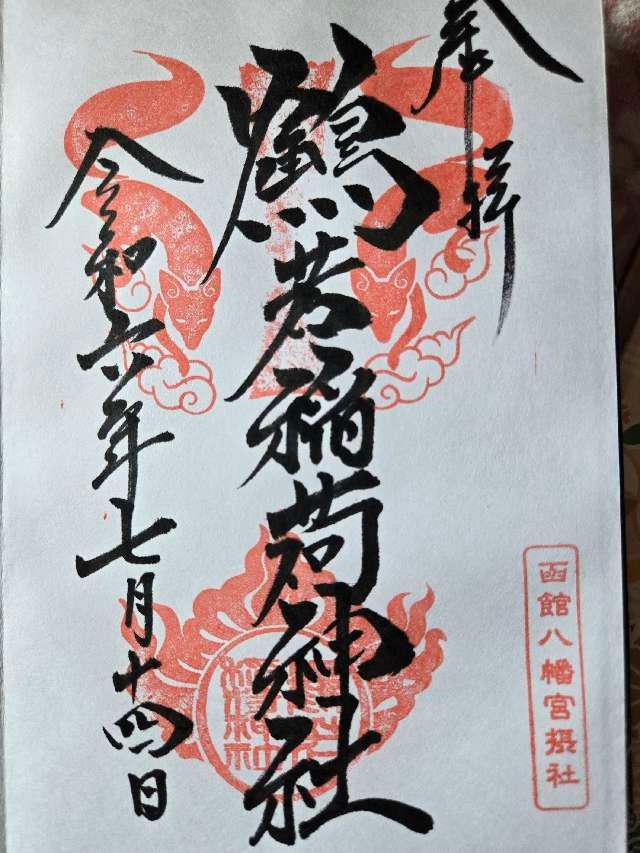 奉拝
鶴若稲荷神社
令和六年七月十四日
函館八幡宮摂社